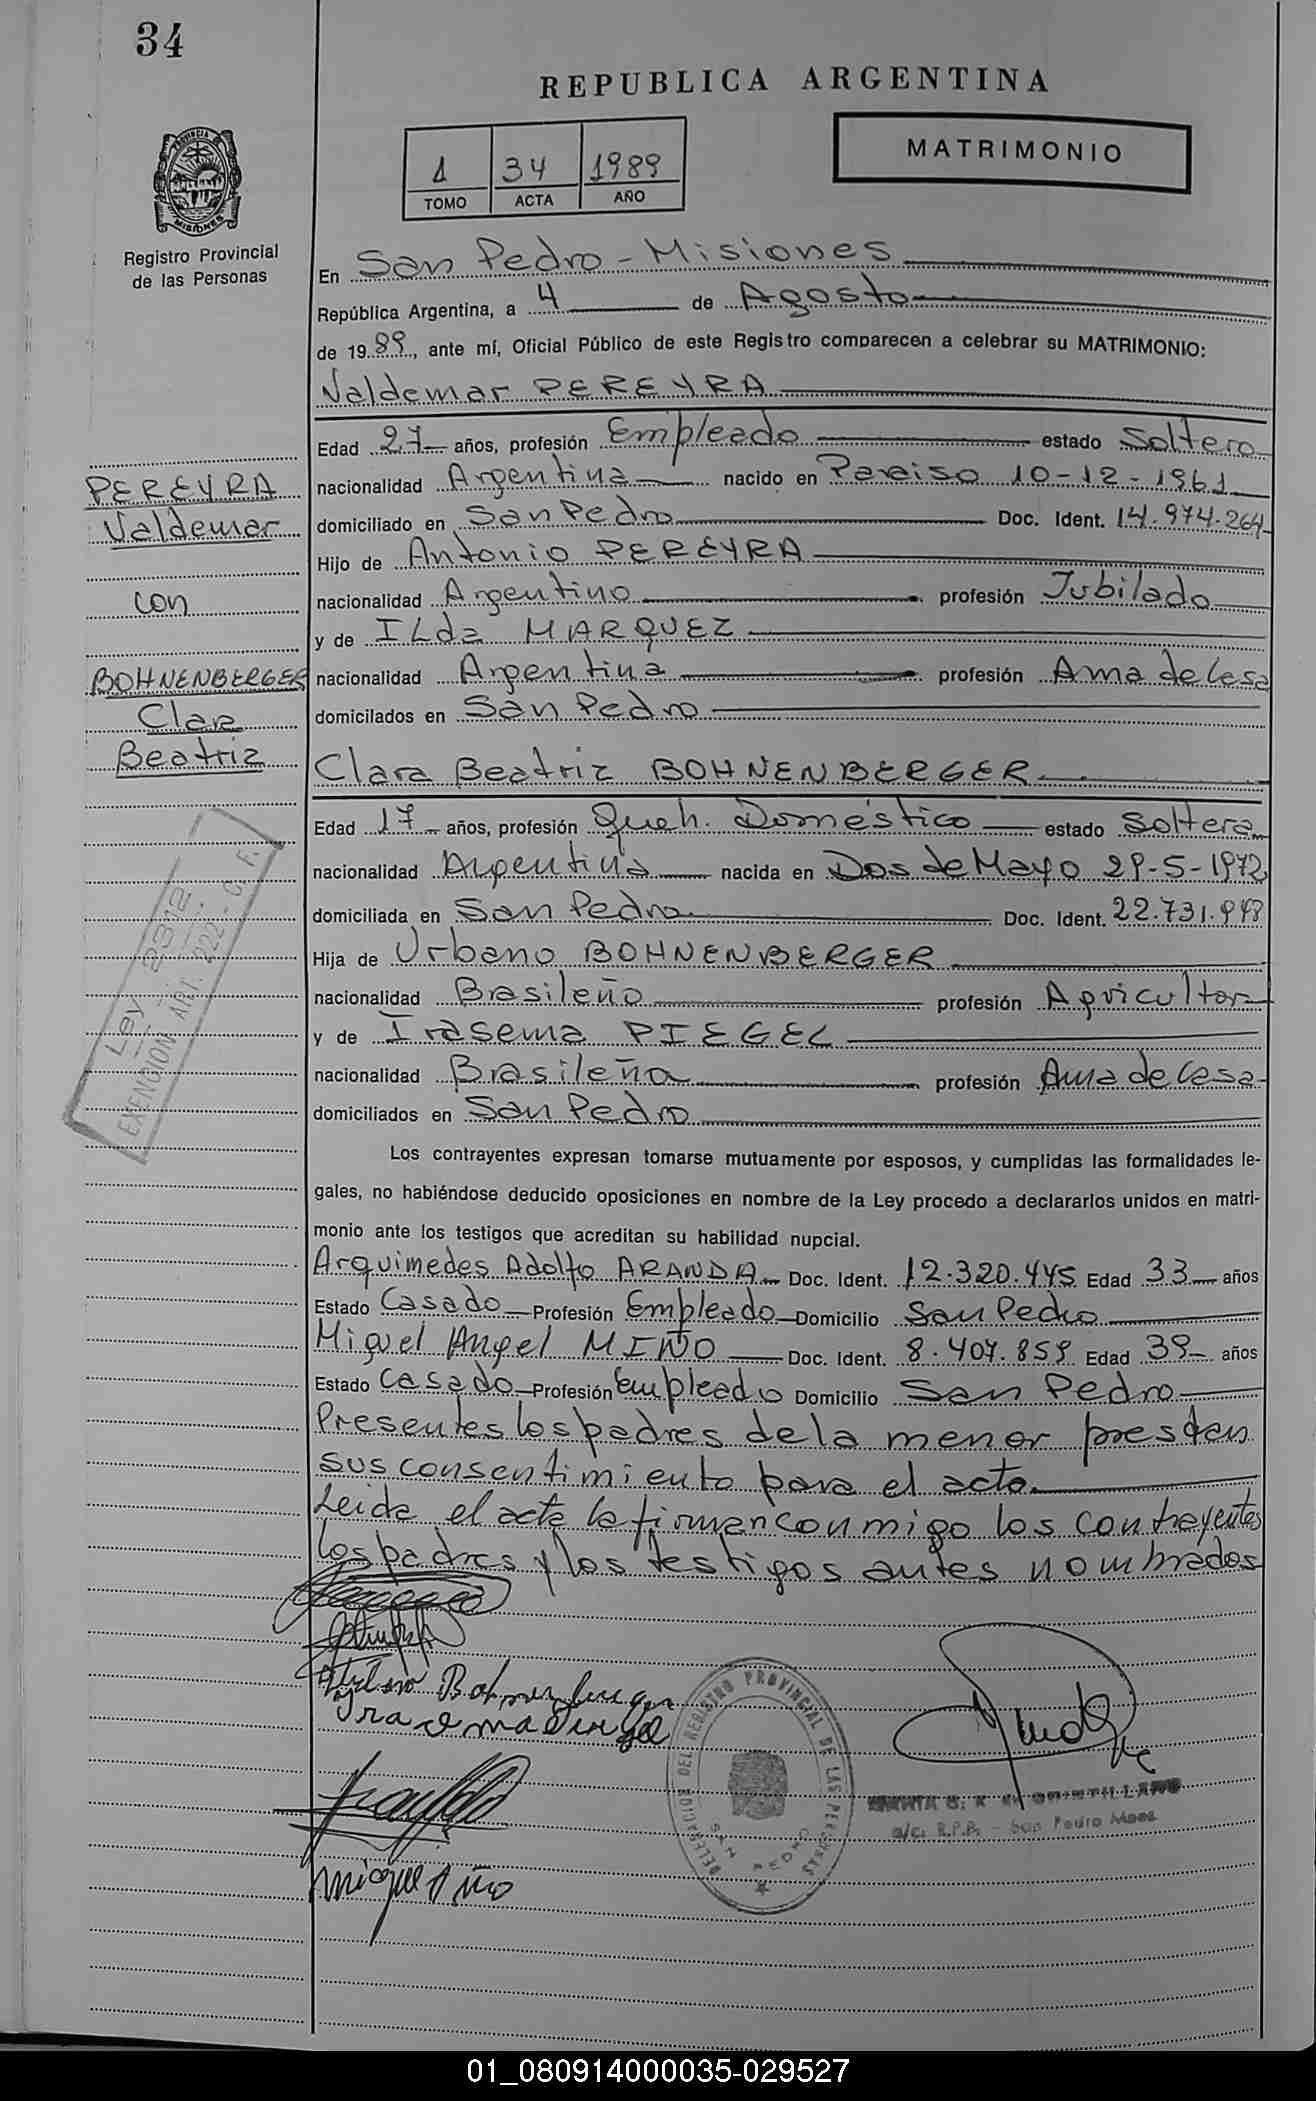 34
REPUBLICA ARGENTINA
MATRIMONIO
1 34 1989
TOMO ACTA AÑO
PROVINCIA DE
MISIONES
Registro Provincial
de las Personas
En San Pedro - Misiones
República Argentina, a 4 de Agosto
de 1989, ante mí, Oficial Público de este Registro comparecen a celebrar su MATRIMONIO:
Valdemar PEREYRA
Edad 27 años, profesión Empleado estado Soltero
nacionalidad Argentina nacido en Paraiso 10-12-1961
domiciliado en San Pedro Doc. Ident. 14.974.264
Hijo de Antonio PEREYRA
nacionalidad Argentino profesión Jubilado
y de ILda MARQUEZ
nacionalidad Argentina profesión Ama de Casa
domicilados en San Pedro
PEREYRA
Valdemar
con
BOHNENBERGER
Clara
Beatriz
Clara Beatriz BOHNENBERGER
Edad 17 años, profesión Queh. Doméstico estado Soltera
nacionalidad Argentina nacida en Dos de Mayo 29-5-1972
domiciliada en San Pedro Doc. Ident. 22.731.948
Hija de Urbano BOHNENBERGER
nacionalidad Brasileño profesión Agricultor
y de Irasema PIEGEL
nacionalidad Brasileña profesión Ama de Casa
domiciliados en San Pedro
Ley 2312
EXENCION ART. 222 - C. F.
Los contrayentes expresan tomarse mutuamente por esposos, y cumplidas las formalidades le-
gales, no habiéndose deducido oposiciones en nombre de la Ley procedo a declararlos unidos en matri-
monio ante los testigos que acreditan su habilidad nupcial.
Arquimedes Adolfo ARANDA Doc. Ident. 12.320.445 Edad 33 años
Estado Casado Profesión Empleado Domicilio San Pedro
Miguel Angel MIÑO Doc. Ident. 8.407.859 Edad 39 años
Estado Casado Profesión Empleado Domicilio San Pedro
Presentes los padres de la menor prestan
sus consentimiento para el acto.
Leida el acta la firman conmigo los contrayentes
los padres y los testigos antes nombrados
DELEGACION DEL REGISTRO PROVINCIAL DE LAS PERSONAS
SAN PEDRO
a/c. R.P.P. - San Pedro Mnes
Miguel A Miño
01_080914000035-029527